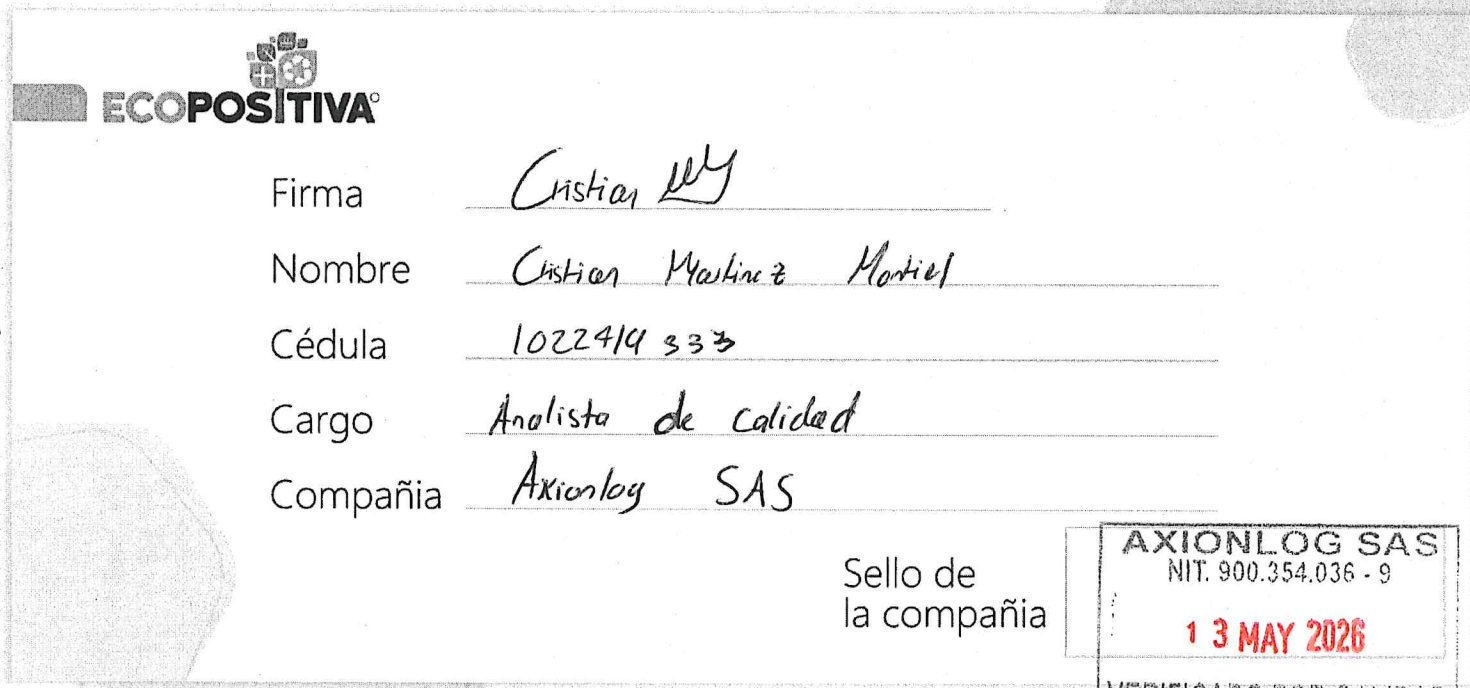 ECOPOSITIVA
Firma Cristian
Nombre Cristian Martinez Montiel
Cédula 1022419333
Cargo Analista de calidad
Compañia Axionlog SAS
Sello de
la compañia
AXIONLOG SAS
NIT. 900.354.036 - 9
13 MAY 2026